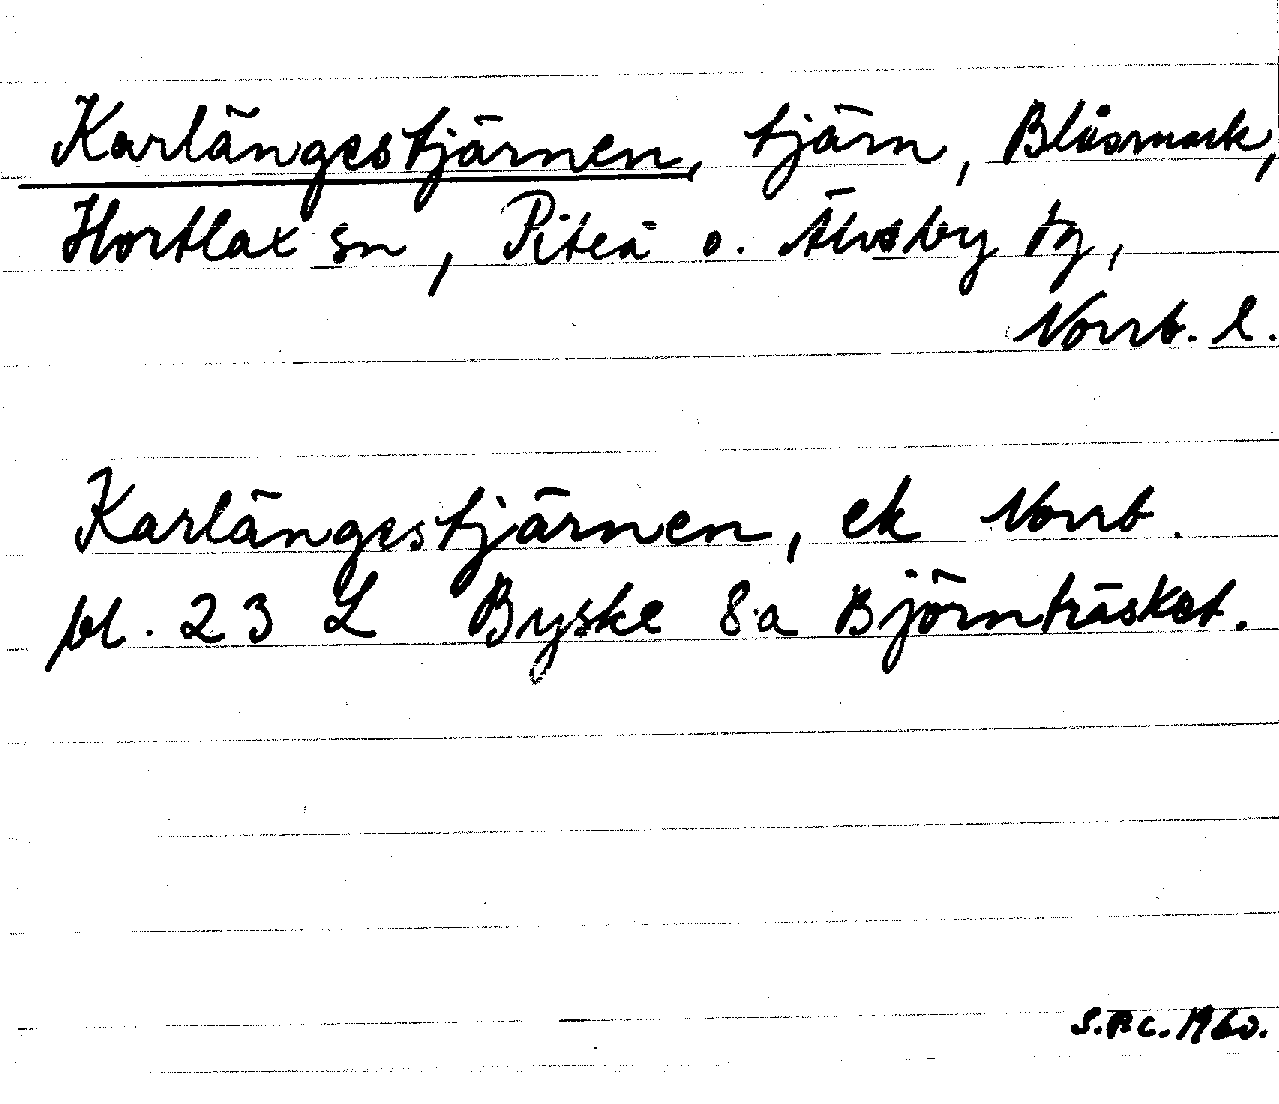 Karlängestjärnen, tjärn, Blåsmark,
Hortlax sn, Piteå o. Älvsby tg,
Norrb. l.
Karlängestjärnen, ek Norrb.
bl. 23 L Byske 8a Björnträsket.
S.B.C. 1960.